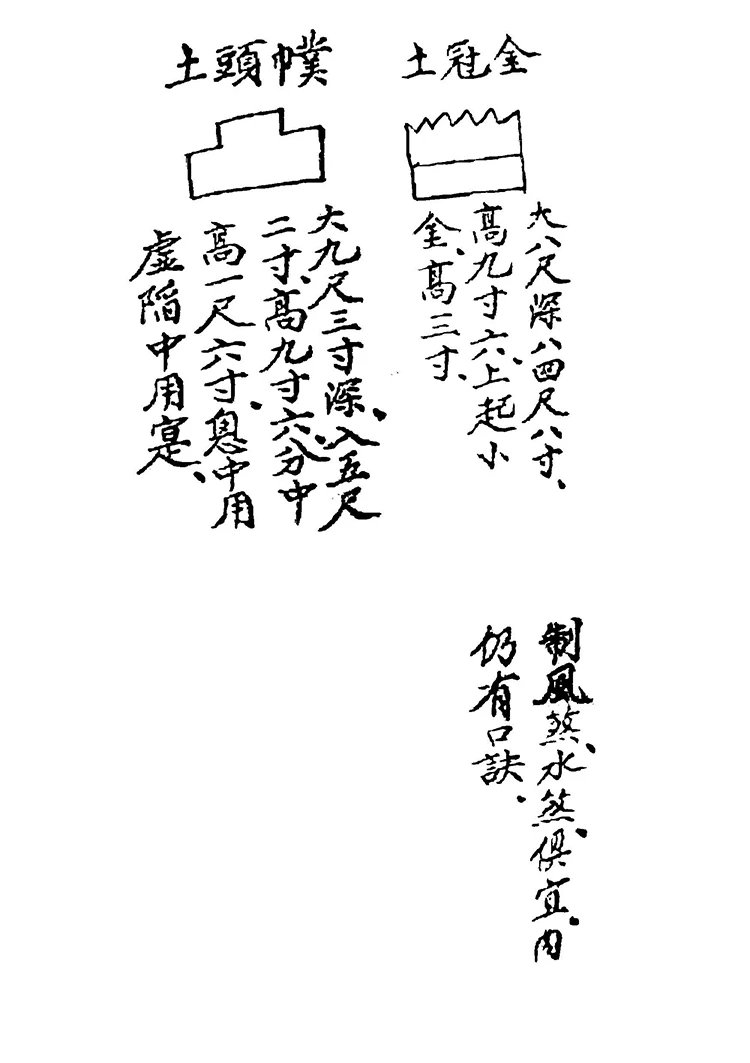 金冠土
大八尺深八四尺八寸、
高九寸六、上起小
金、高三寸、
幞頭土
大九尺三寸深、入五尺
二寸、高九寸六分、中
高一尺六寸、息中用
虛陷中用寔、
制風煞、水煞、俱宜、內
仍有口訣、